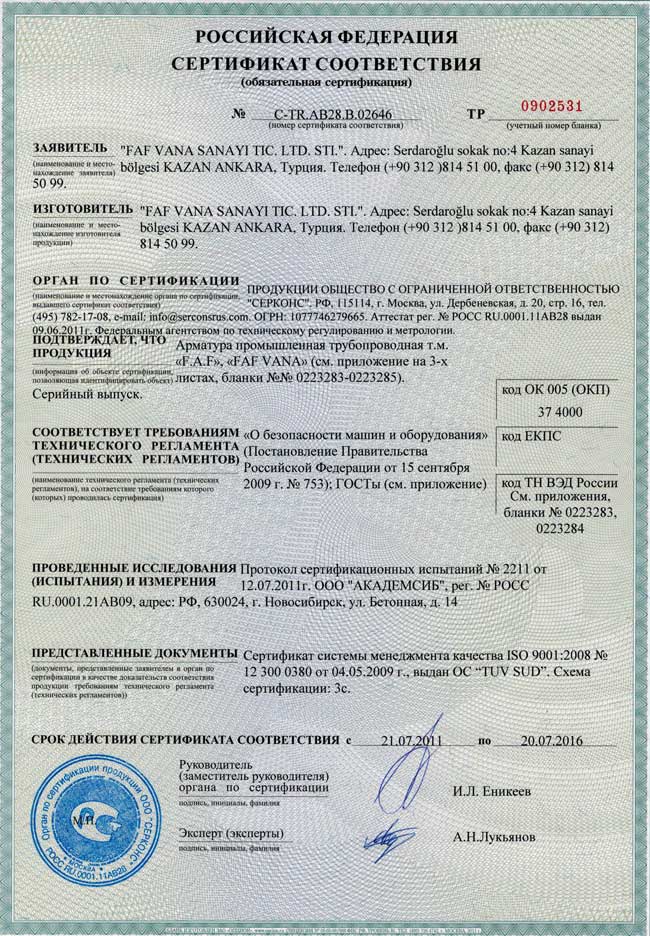 РОССИЙСКАЯ ФЕДЕРАЦИЯ
СЕРТИФИКАТ СООТВЕТСТВИЯ
(обязательная сертификация)
№ C-TR.АВ28.В.02646 ТР 0902531
(номер сертификата соответствия) (учетный номер бланка)
ЗАЯВИТЕЛЬ "FAF VANA SANAYI TIC. LTD. STI.". Адрес: Serdaroğlu sokak no:4 Kazan sanayi
(наименование и место-
нахождение заявителя) bölgesi KAZAN ANKARA, Турция. Телефон (+90 312 )814 51 00, факс (+90 312) 814
50 99.
ИЗГОТОВИТЕЛЬ "FAF VANA SANAYI TIC. LTD. STI.". Адрес: Serdaroğlu sokak no:4 Kazan sanayi
(наименование и место-
нахождение изготовителя
продукции) bölgesi KAZAN ANKARA, Турция. Телефон (+90 312 )814 51 00, факс (+90 312)
814 50 99.
ОРГАН ПО СЕРТИФИКАЦИИ ПРОДУКЦИИ ОБЩЕСТВО С ОГРАНИЧЕННОЙ ОТВЕТСТВЕННОСТЬЮ
(наименование и местонахождение органа по сертификации,
выдавшего сертификат соответствия) "СЕРКОНС". РФ, 115114, г. Москва, ул. Дербеневская, д. 20, стр. 16, тел.
(495) 782-17-08, e-mail: info@serconsrus.com. ОГРН: 1077746279665. Аттестат рег. № РОСС RU.0001.11АВ28 выдан
09.06.2011г. Федеральным агентством по техническому регулированию и метрологии.
ПОДТВЕРЖДАЕТ, ЧТО
ПРОДУКЦИЯ Арматура промышленная трубопроводная т.м.
(информация об объекте сертификации,
позволяющая идентифицировать объект) «F.A.F», «FAF VANA» (см. приложение на 3-х
листах, бланки №№ 0223283-0223285).
Серийный выпуск.
код ОК 005 (ОКП)
37 4000
СООТВЕТСТВУЕТ ТРЕБОВАНИЯМ
ТЕХНИЧЕСКОГО РЕГЛАМЕНТА
(ТЕХНИЧЕСКИХ РЕГЛАМЕНТОВ)
(наименование технического регламента (технических
регламентов), на соответствие требованиям которого
(которых) проводилась сертификация)
«О безопасности машин и оборудования»
(Постановление Правительства
Российской Федерации от 15 сентября
2009 г. № 753); ГОСТы (см. приложение)
код ЕКПС
код ТН ВЭД России
См. приложения,
бланки № 0223283,
0223284
ПРОВЕДЕННЫЕ ИССЛЕДОВАНИЯ Протокол сертификационных испытаний № 2211 от
(ИСПЫТАНИЯ) И ИЗМЕРЕНИЯ 12.07.2011г. ООО "АКАДЕМСИБ", рег. № РОСС
RU.0001.21АВ09, адрес: РФ, 630024, г. Новосибирск, ул. Бетонная, д. 14
ПРЕДСТАВЛЕННЫЕ ДОКУМЕНТЫ Сертификат системы менеджмента качества ISO 9001:2008 №
(документы, представленные заявителем в орган по
сертификации в качестве доказательств соответствия
продукции требованиям технического регламента
(технических регламентов))
12 300 0380 от 04.05.2009 г., выдан ОС “TUV SUD”. Схема
сертификации: 3с.
СРОК ДЕЙСТВИЯ СЕРТИФИКАТА СООТВЕТСТВИЯ с 21.07.2011 по 20.07.2016
Руководитель
(заместитель руководителя)
органа по сертификации И.Л. Еникеев
подпись, инициалы, фамилия
Эксперт (эксперты) А.Н.Лукьянов
подпись, инициалы, фамилия
Орган по сертификации продукции ООО "СЕРКОНС"
М.П.
МОСКВА
РОСС RU.0001.11АВ28